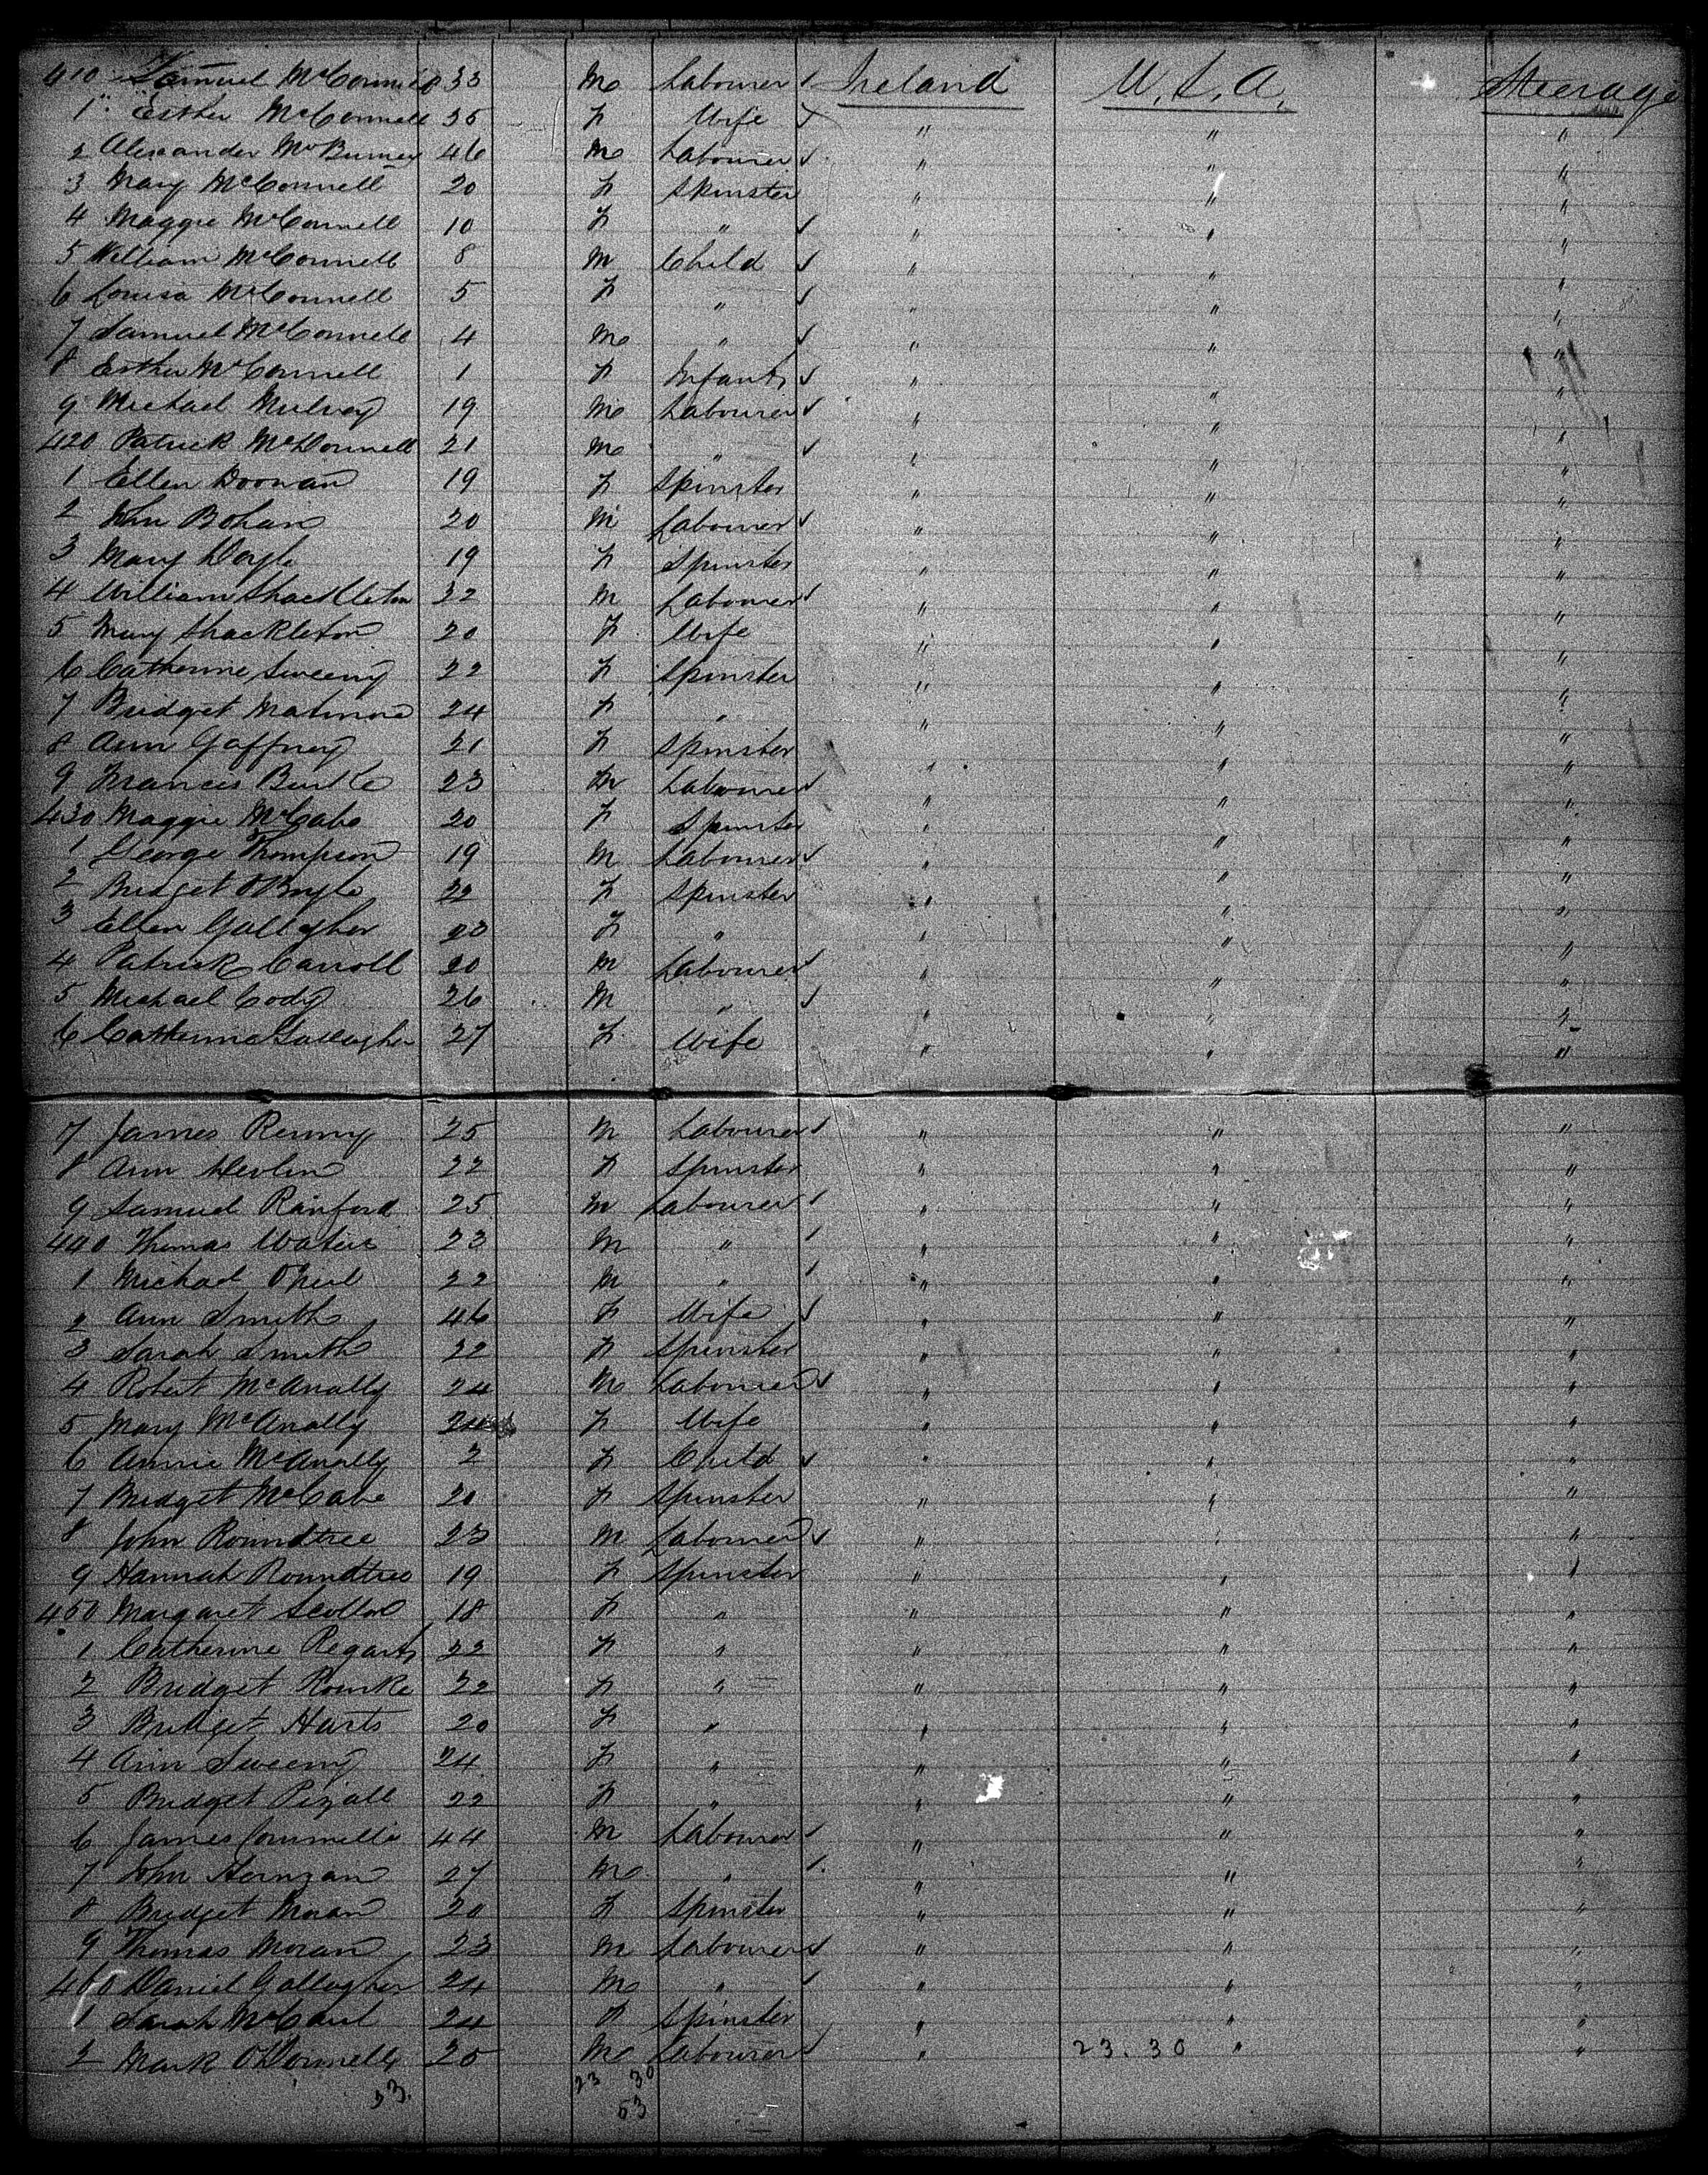 410 Samuel McConnell 33 M Labourer ✓ Ireland U.S.A. Steerage
1 " Esther McConnell 35 F Wife ✓ " " "
2 Alexander McBurney 46 M Labourer ✓ " " "
3 Mary McConnell 20 F Spinster " " "
4 Maggie McConnell 10 F " ✓ " " "
5 William McConnell 8 M Child ✓ " " "
6 Louisa McConnell 5 F " ✓ " " "
7 Samuel McConnell 4 M " ✓ " " "
8 Esther McConnell 1 F Infant ✓ " " "
9 Michael Mulvey 19 M Labourer ✓ " " "
420 Patrick McDonnell 21 M " ✓ " " "
1 Ellen Doonan 19 F Spinster " " "
2 John Bohan 20 M Labourer ✓ " " "
3 Mary Doyle 19 F Spinster " " "
4 William Shackleton 32 M Labourer ✓ " " "
5 Mary Shackleton 20 F Wife " " "
6 Catherine Sweeny 22 F Spinster " " "
7 Bridget 24 F " " " "
8 Ann Gaffney 21 F Spinster " " "
9 Francis Burke 23 M Labourer ✓ " " "
430 Maggie McCabe 20 F Spinster " " "
1 George Thompson 19 M Labourer ✓ " " "
2 Bridget OBoyle 22 F Spinster " " "
3 Ellen Gallagher 20 F " " " "
4 Patrick Carroll 20 M Labourer ✓ " " "
5 Michael Cody 26 M " ✓ " " "
6 Catherine Gallagher 27 F Wife " " "
7 James Renny 25 M Labourer ✓ " " "
8 Ann Devlin 22 F Spinster " " "
9 Samuel Rainford 25 M Labourer ✓ " " "
440 Thomas Waters 23 M " ✓ " " "
1 Michael ONeil 22 M " ✓ " " "
2 Ann Smith 46 F Wife ✓ " " "
3 Sarah Smith 22 F Spinster " " "
4 Robert McAnally 24 M Labourer ✓ " " "
5 Mary McAnally 24 F Wife " " "
6 Annie McAnally 2 F Child ✓ " " "
7 Bridget McCabe 20 F Spinster " " "
8 John Roundtree 23 M Labourer ✓ " " "
9 Hannah Roundtree 19 F Spinster " " "
450 Margaret Scollon 18 F " " " "
1 Catherine 22 F " " " "
2 Bridget Rourke 22 F " " " "
3 Bridget Harts 20 F " " " "
4 Ann Sweeny 24 F " " " "
5 Bridget 22 F " " " "
6 James 44 M Labourer ✓ " " "
7 John 27 M " ✓ " " "
8 Bridget Moran 20 F Spinster " " "
9 Thomas Moran 23 M Labourer ✓ " " "
460 Daniel Gallagher 24 M " ✓ " " "
1 Sarah McCaul 24 F Spinster " " "
2 Mark ODonnell 20 M Labourer ✓ " 23. 30 " "
53. 23 30
53